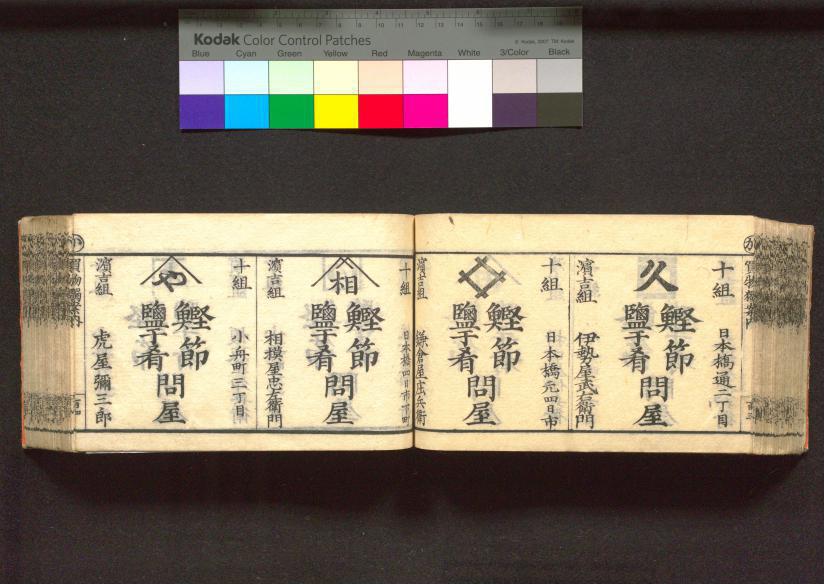 Kodak Color Control Patches
© Kodak, 2007 TM: Kodak
Blue Cyan Green Yellow Red Magenta White 3/Color Black
か
買物獨案内
十組
日本橋通二丁目
久
鰹節
鹽干肴
問屋
濱吉組
伊勢屋武左衛門
十組
日本橋元四日市
鰹節
鹽干肴
問屋
濱吉組
鎌倉屋庄兵衛
十組
日本橋四日市町
相
鰹節
鹽干肴
問屋
濱吉組
相摸屋忠左衛門
十組
小舟町三丁目
や
鰹節
鹽干肴
問屋
濱吉組
虎屋彌三郎
か
買物獨案内